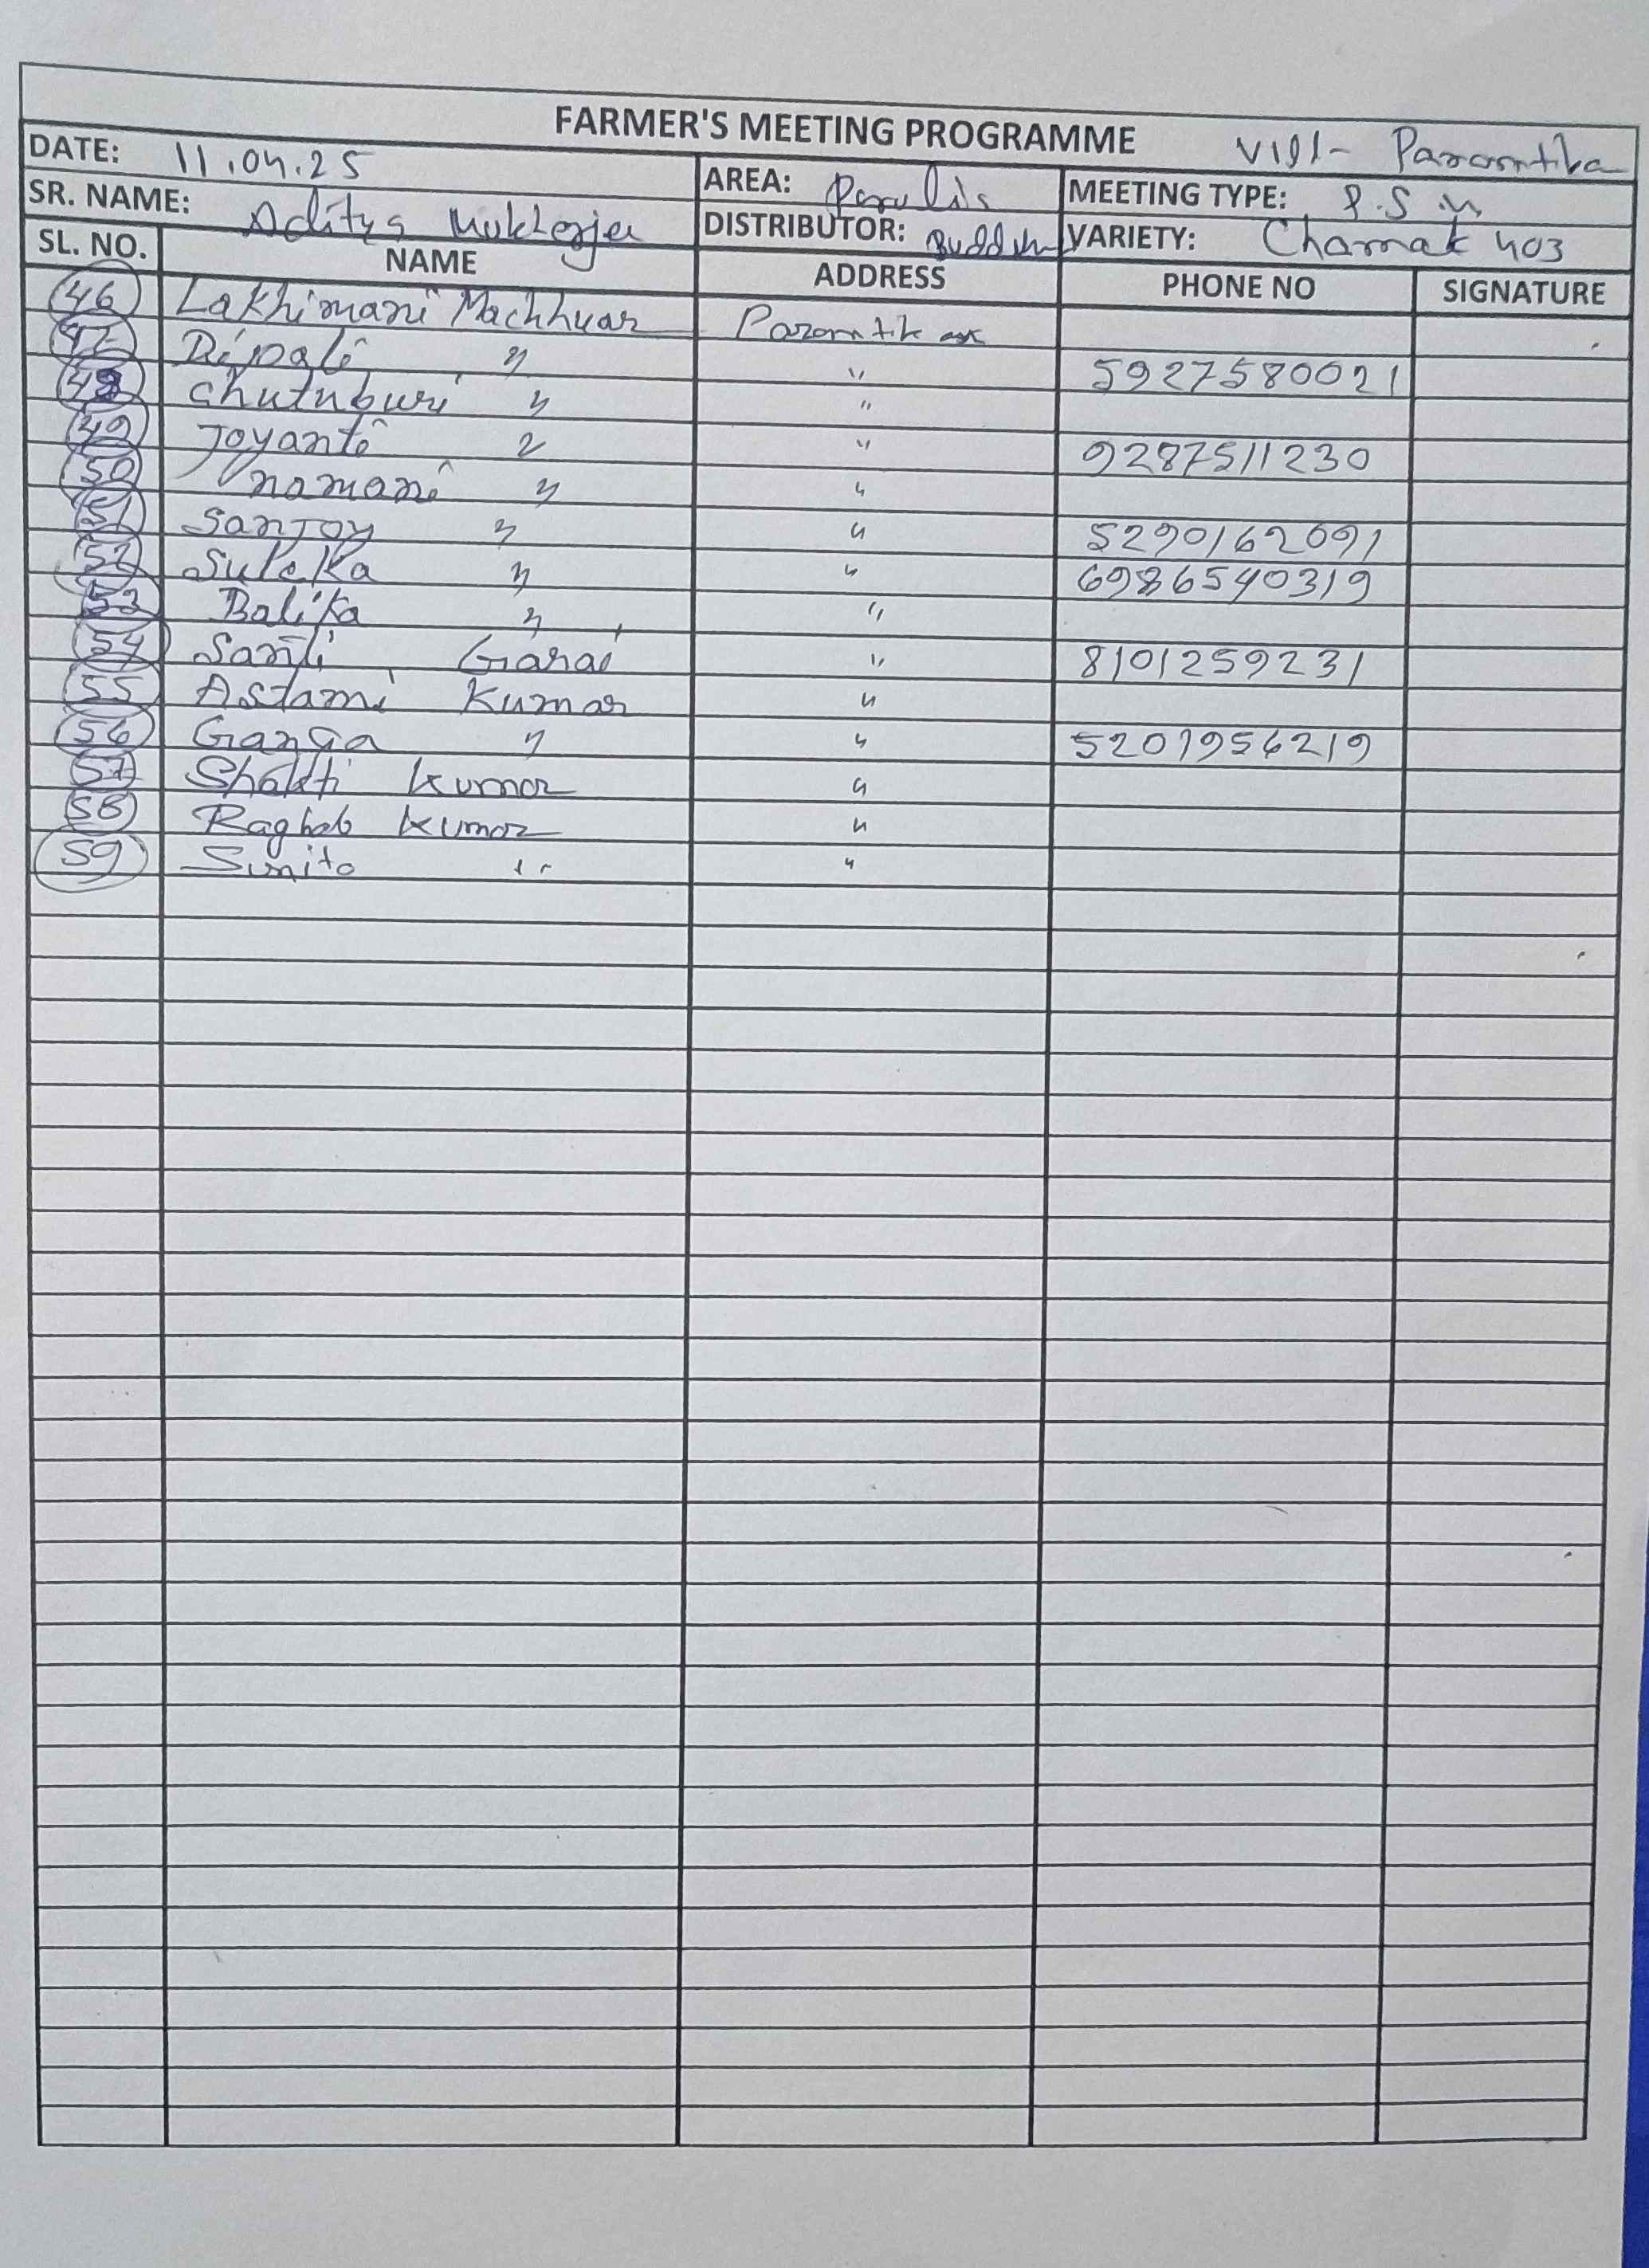 FARMER'S MEETING PROGRAMME Vill- Paramtika
DATE: 11.04.25 AREA: MEETING TYPE: P.S.M
SR. NAME: Aditya Mukherjee DISTRIBUTOR: VARIETY: Chamak 403
SL. NO. NAME ADDRESS PHONE NO SIGNATURE
46 Lakhimani Machhuar
47 Dipali " " 5927580021
48 Chutuburi " "
49 Joyanti " " 9287511230
50 "  "
51 Sanjoy " " 5290162091
52 Suleka " " 6986540319
53 Balika " "
54 Santi Garai " 8101259231
55 Astami Kumar "
56 Ganga " " 5201956219
57 Shakti Kumar "
58 Raghab Kumar "
59 Sunita " "